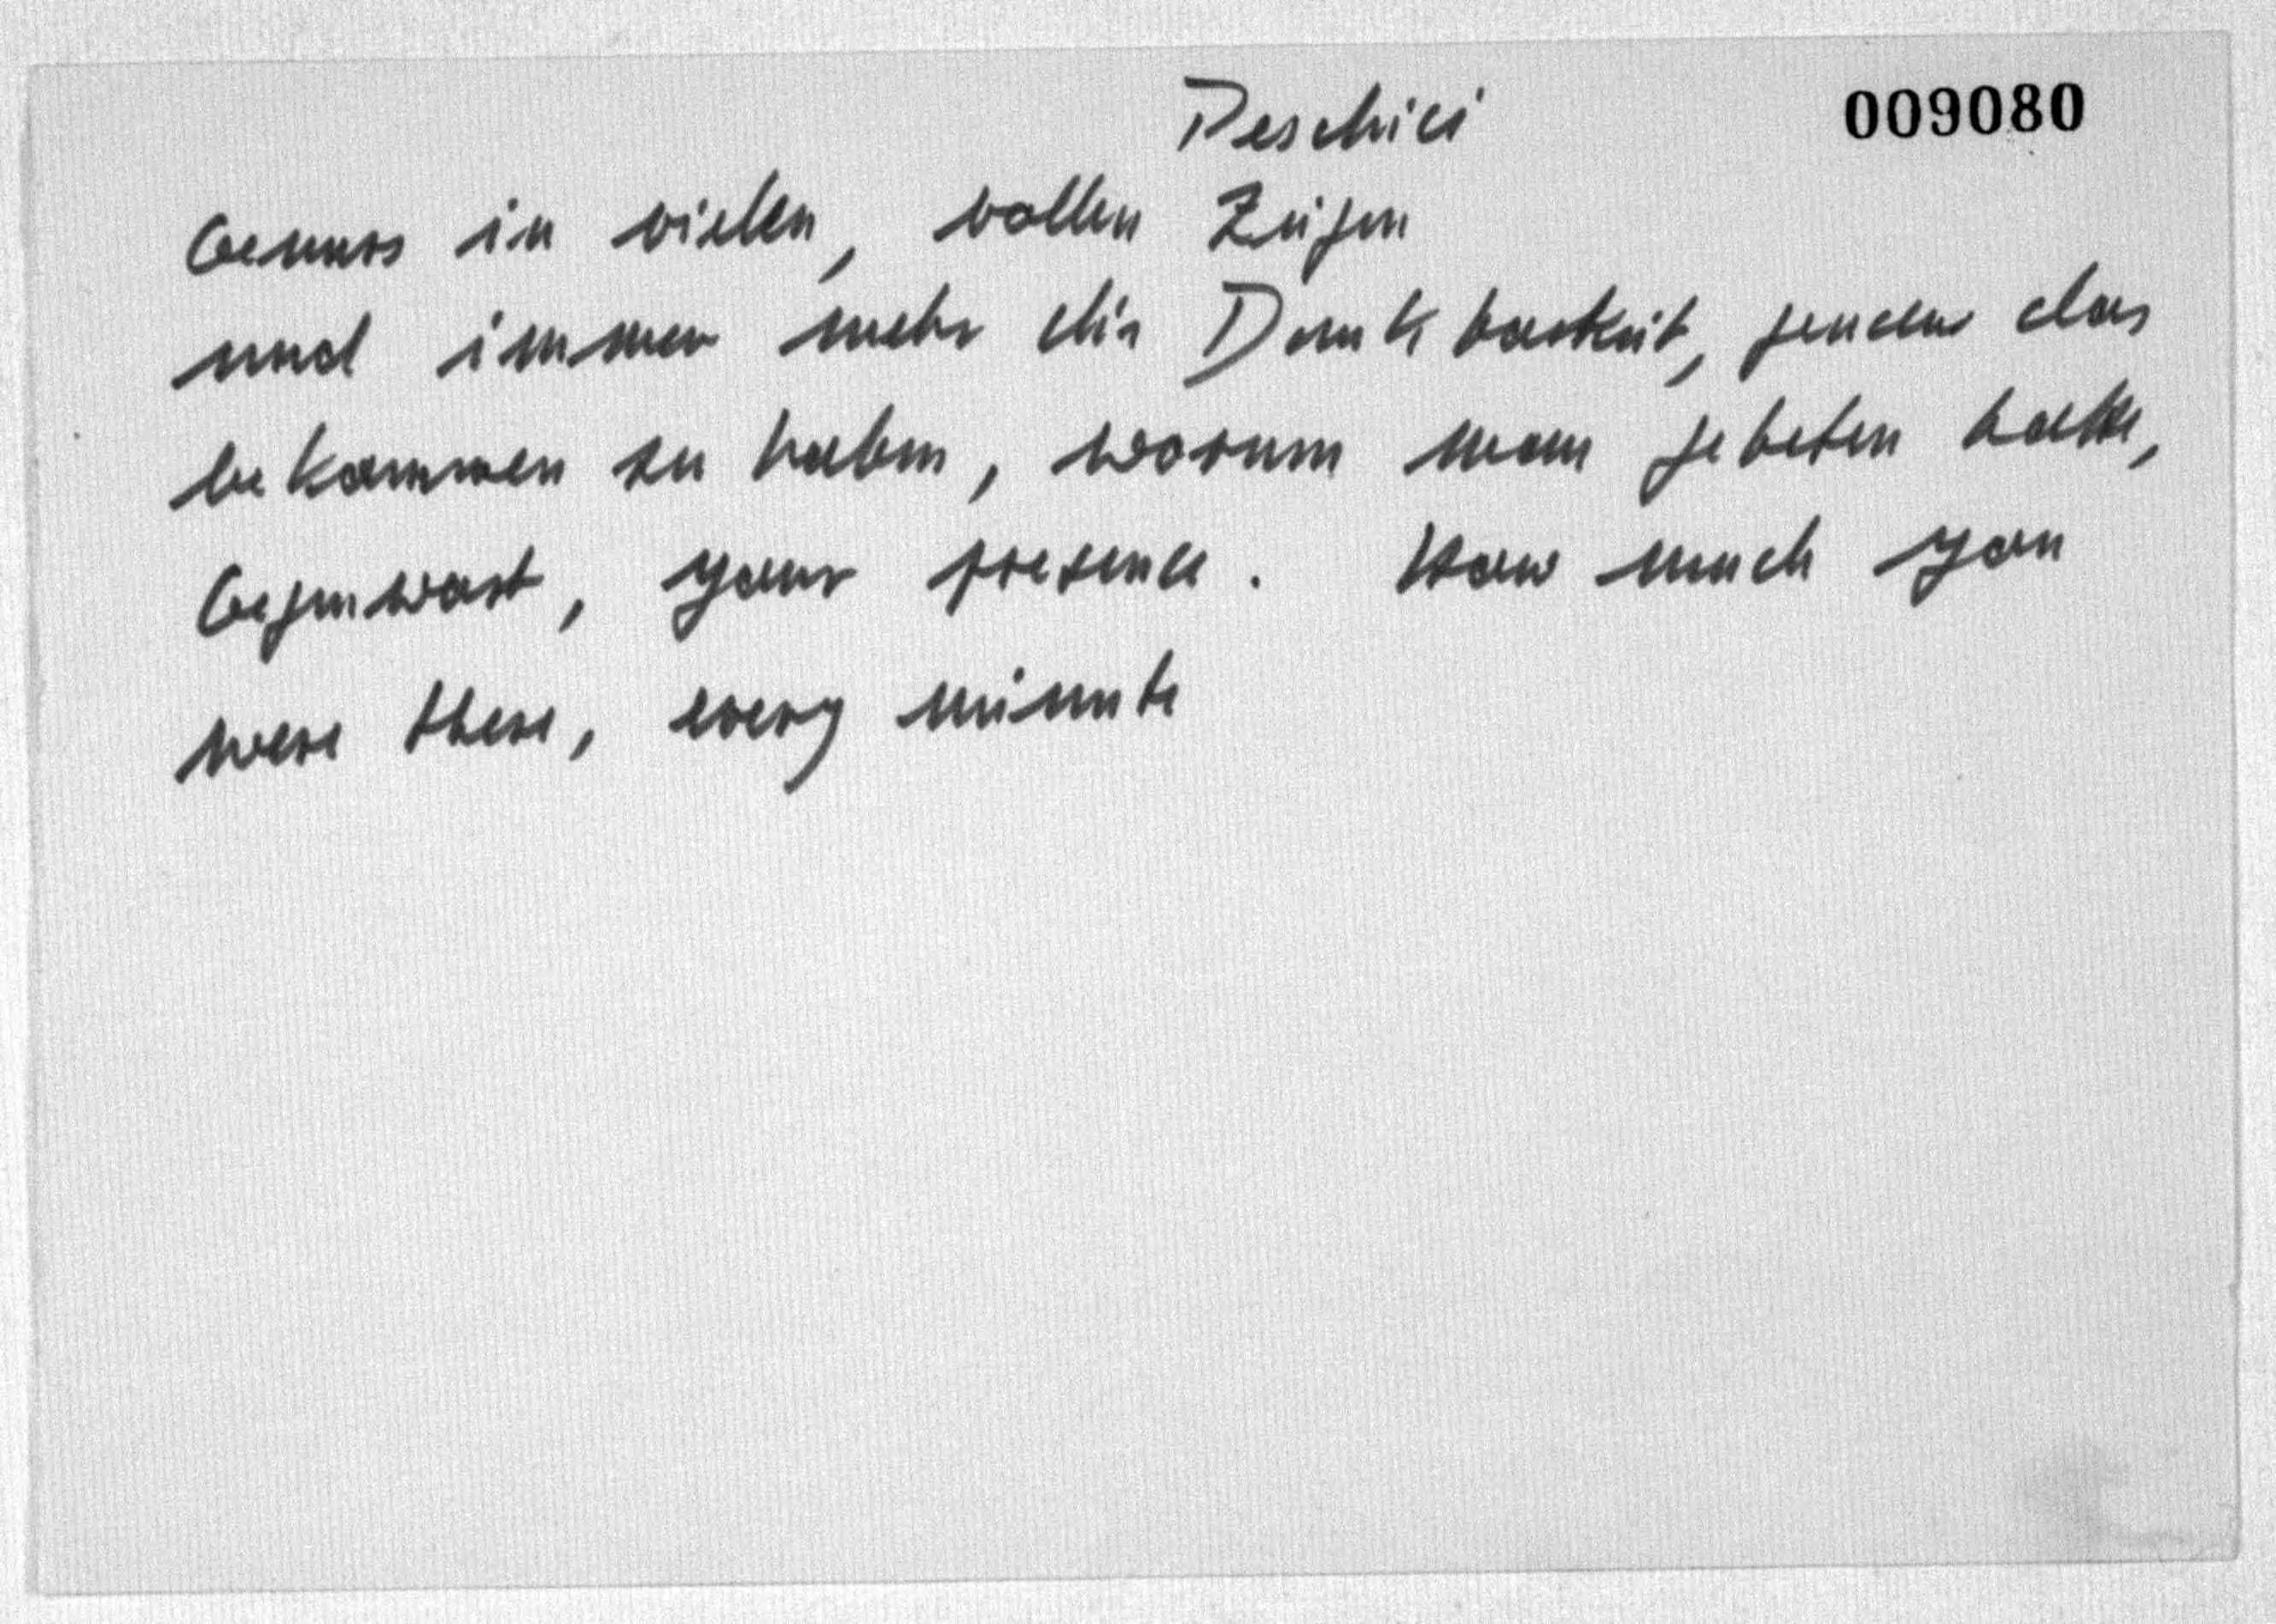 Peschici 009080
Genuss in vielen, vollen Zügen
und immer mehr die Dankbarkeit, genau das
bekommen zu haben, worum man gebeten hatte,
Gegenwart, your presence. How much you
were there, every minute